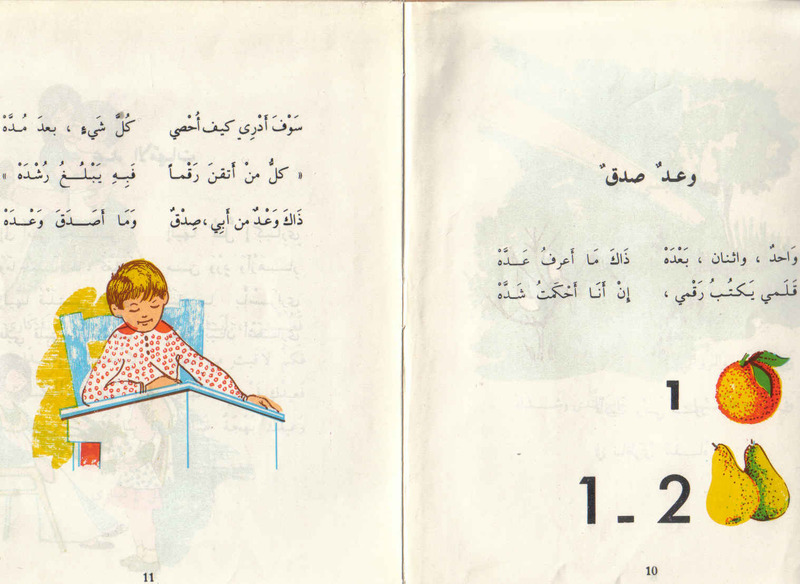 وعدٌ صدقٌ
وَاحدٌ ، واثنان ، بَعْدَهْ ذَاكَ مَا أَعرفُ عَدَّهْ
قَلَمي يَكتُبُ رَقْمي ، إِنْ أَنَا أَحْكَمْتُ شَدَّهْ
1
1 - 2
10
سَوْفَ أَدْرِي كيف أُحْصي كُلَّ شَيءٍ ، بعدَ مُدَّهْ
« كلُّ منْ أَتقنَ رَقْماً فَبِهِ يَبْلُغُ رُشْدَهْ »
ذَاكَ وَعْدٌ من أَبِي ، صِدْقٌ وَمَا أَصْدَقَ وَعْدَهْ
11